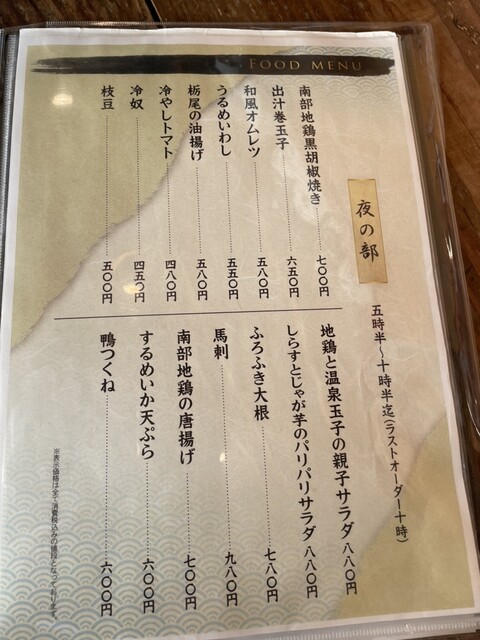 FOOD MENU
夜の部
五時半～十時半迄(ラストオーダー十時)
南部地鶏黒胡椒焼き 七〇〇円
出汁巻玉子 六五〇円
和風オムレツ 五八〇円
うるめいわし 五五〇円
栃尾の油揚げ 五八〇円
冷やしトマト 四八〇円
冷奴 四五〇円
枝豆 五〇〇円
地鶏と温泉玉子の親子サラダ 八八〇円
しらすとじゃが芋のパリパリサラダ 八八〇円
ふろふき大根 七八〇円
馬刺 九八〇円
南部地鶏の唐揚げ 七〇〇円
するめいか天ぷら 六〇〇円
鴨つくね 六〇〇円
※表示価格は全て消費税込みの値段となっております。